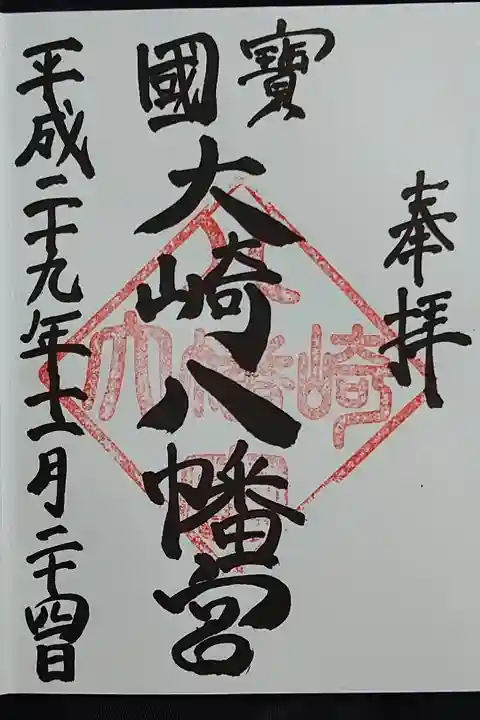 奉拝
國寶
大崎八幡宮
平成二十九年十二月二十四日
大崎八幡宮